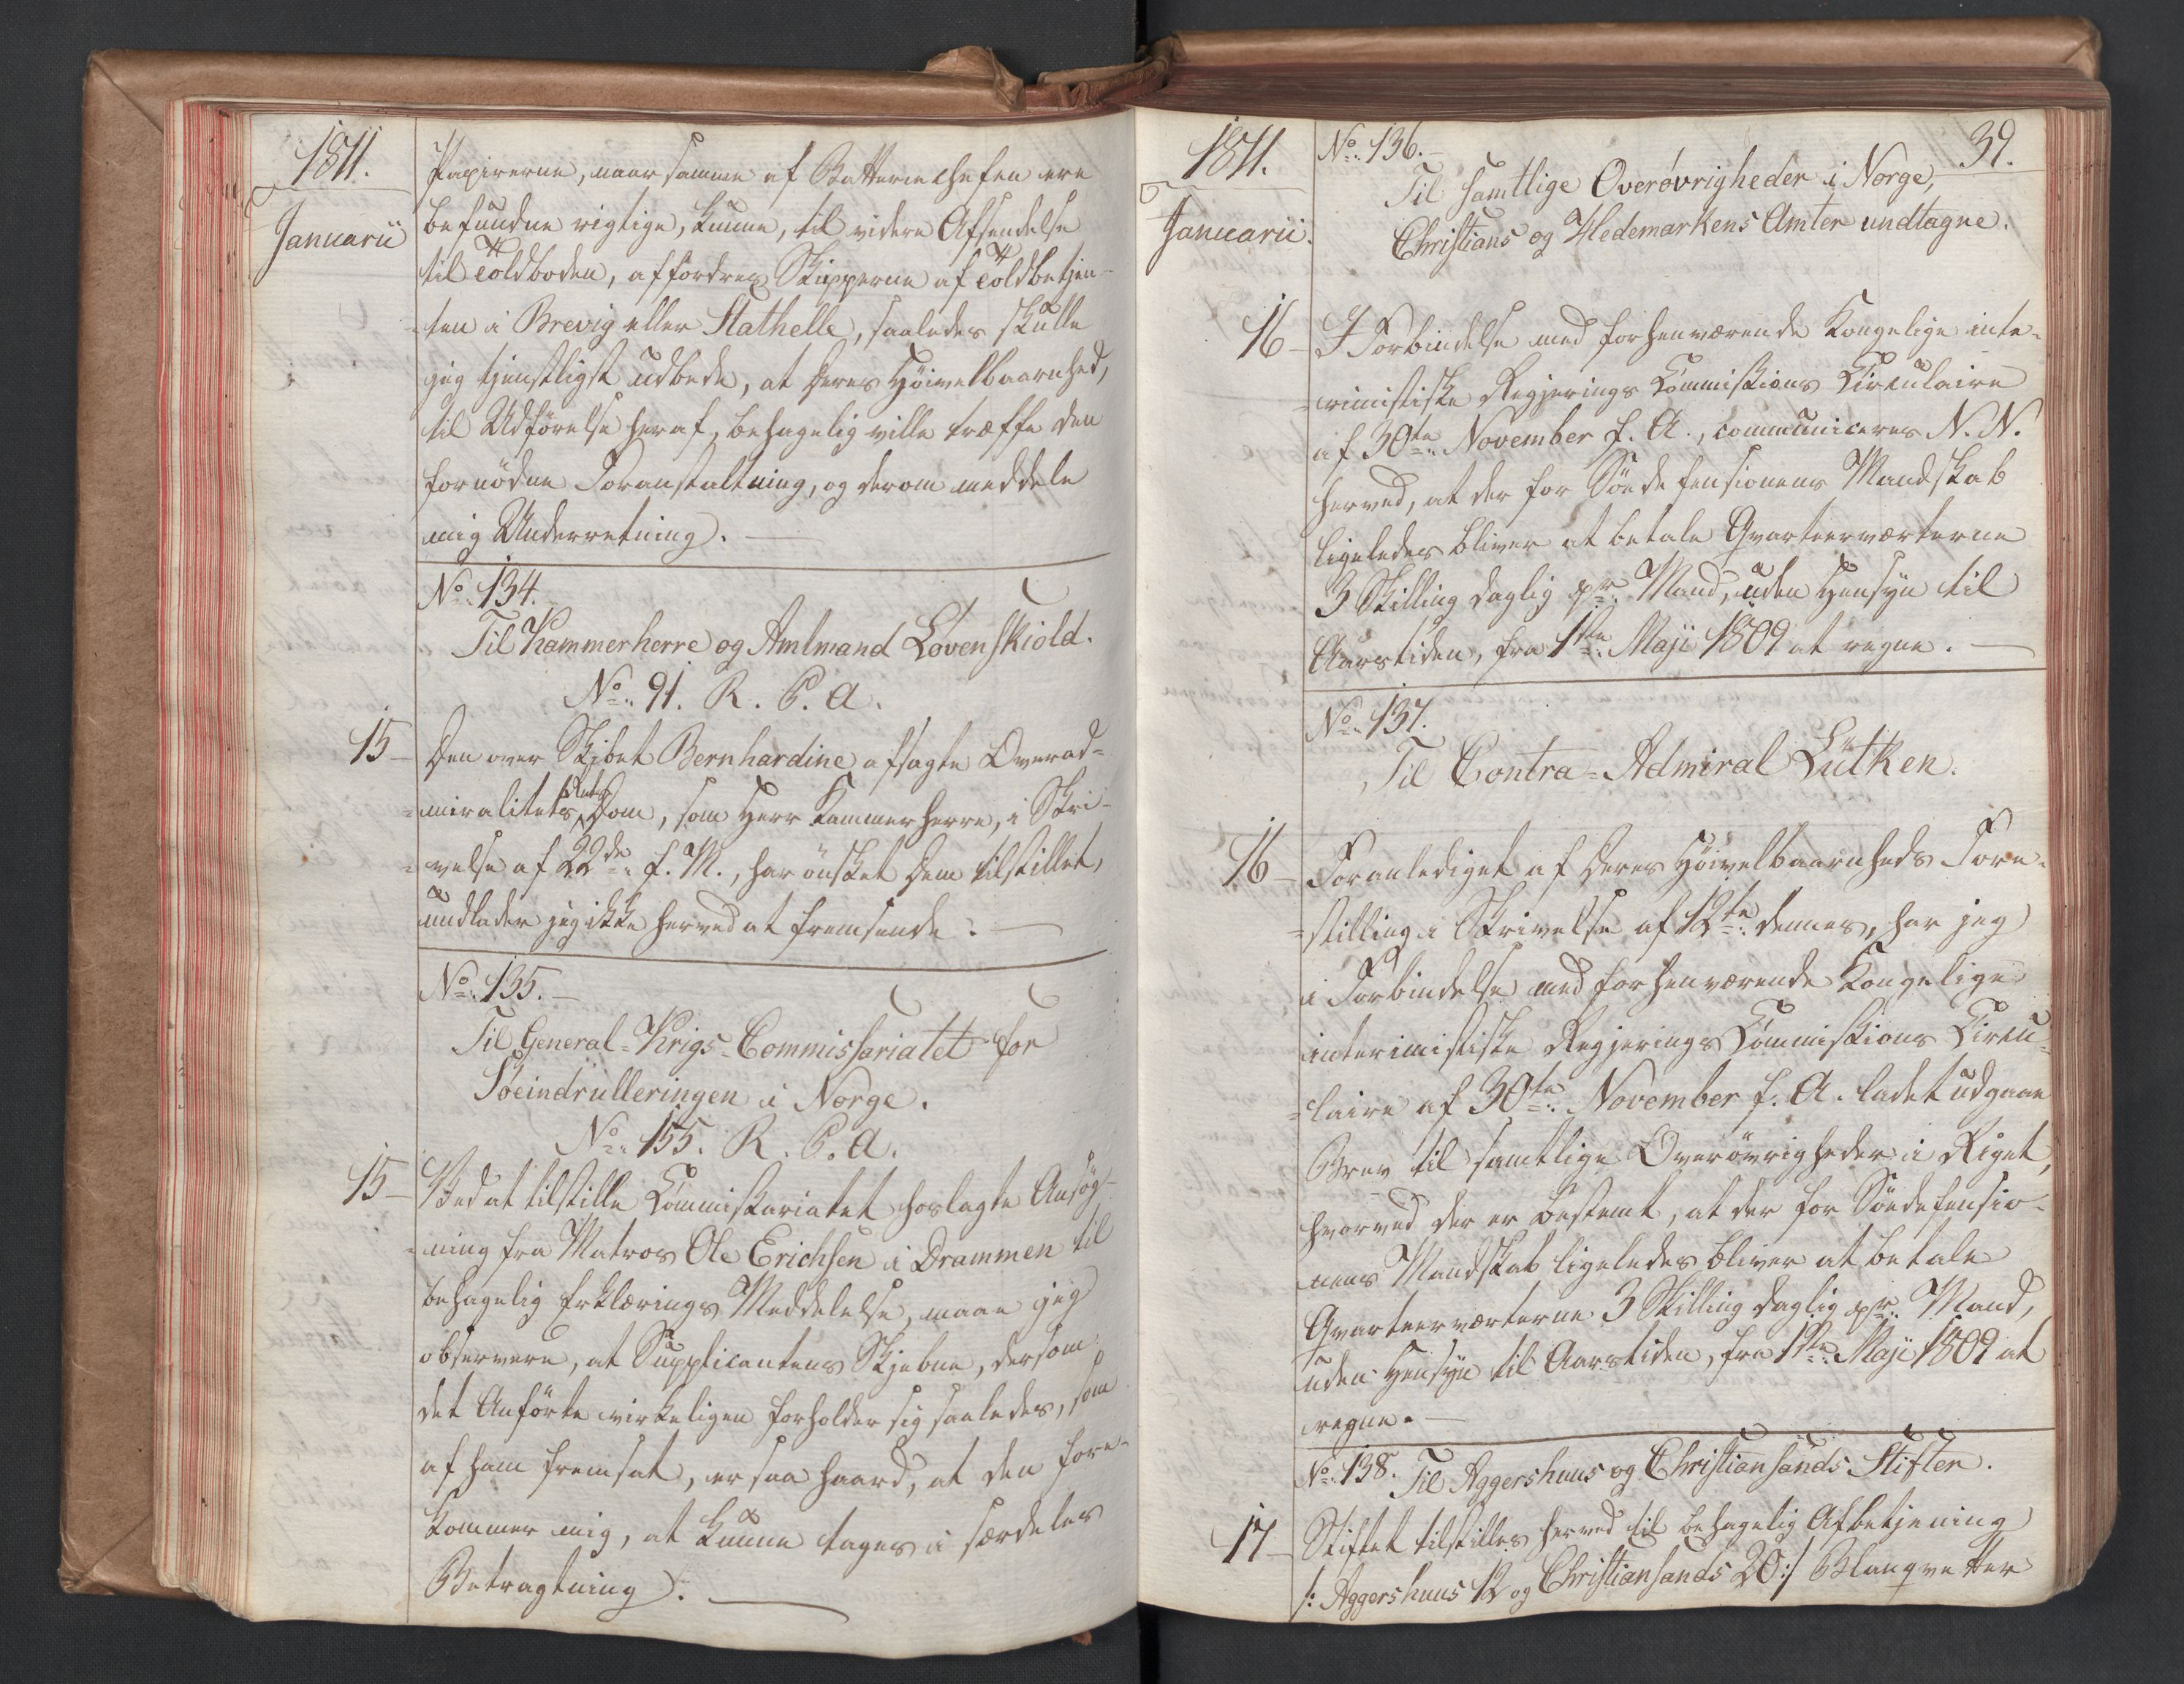 1811.
Januarii
Papirerne, naar samme af Batteriechefen ere
befundne rigtige, kunne, til videre Afsendelse
til Toldboden, affordres Skipperne af Toldbetjen-
ten i Brevig eller Stathelle, saaledes skulle
jeg tjenstligst udbede, at Deres Höivelbaarnhed,
til Udförelse heraf, behagelig ville træffe den
fornödne Foranstaltning, og derom meddele
mig Underretning. —
No. 134.
Til Kammerherre og Amtmand Løvenskiold.
No. 91. R. P. A.
15 — Den over Skibet Bernhardine afsagte Overad=
=miralitets Dom, som Herr Kammerherre, i Skri-
=velse af 22de f. M., har önsket Dem tilstillet,
undlader jeg ikke herved at fremsende. —
No. 135. —
Til General=Krigs=Commissariatet for
Søeindrulleringen i Norge.
No. 155. R. P. A.
15 — Ved at tilstille Commissariatet hoslagte Ansög-
=ning fra Matros Ole Erichsen i Drammen til
behagelig Erklærings Meddelelse, maae jeg
observere, at Supplicantens Skjebne, dersom
det Anförte virkeligen forholder sig saaledes, som
af ham fremsat, er saa haard, at den fore-
kommer mig, at kunne tages i særdeles
Betragtning. —
1811.
Januarii.
39.
No. 136. —
Til samtlige Overøvrigheder i Norge,
Christians og Hedemarkens Amter undtagne.
16 — I Forbindelse med forhenværende Kongelige inte-
=rimistiske Regjerings Commissions Circulaire
af 30te November f. A., communiceres N. N.
herved, at der for Söedefensionens Mandskab
ligeledes bliver at betale Qvarteerværterne
3 Skilling daglig pr. Mand, uden Hensyn til
Aarstiden, fra 1ste Maji 1809 at regne. —
No. 137.
Til Contra=Admiral Lütken.
16 — Foranlediget af Deres Höivelbaarnheds Fore-
=stilling i Skrivelse af 12te dennes, har jeg
i Forbindelse med forhenværende Kongelige
interimistiske Regjerings Commissions Circu-
=laire af 30te November f. A. ladet udgaae
Brev til samtlige Overövrigheder i Riget,
hvorved der er bestemt, at der for Söedefensio-
nens Mandskab ligeledes bliver at betale
Qvarteerværterne 3 Skilling daglig pr. Mand,
uden Hensyn til Aarstiden, fra 1ste Maji 1809 at
regne. —
No. 138. Til Aggershuus og Christiansands Stifter.
17 — Stiftet tilstilles herved til behagelig Afbetjening
/: Aggershuus 12 og Christiansands 20 :/ Blanqvetter